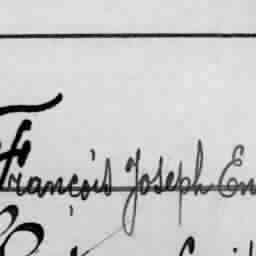 François Joseph En